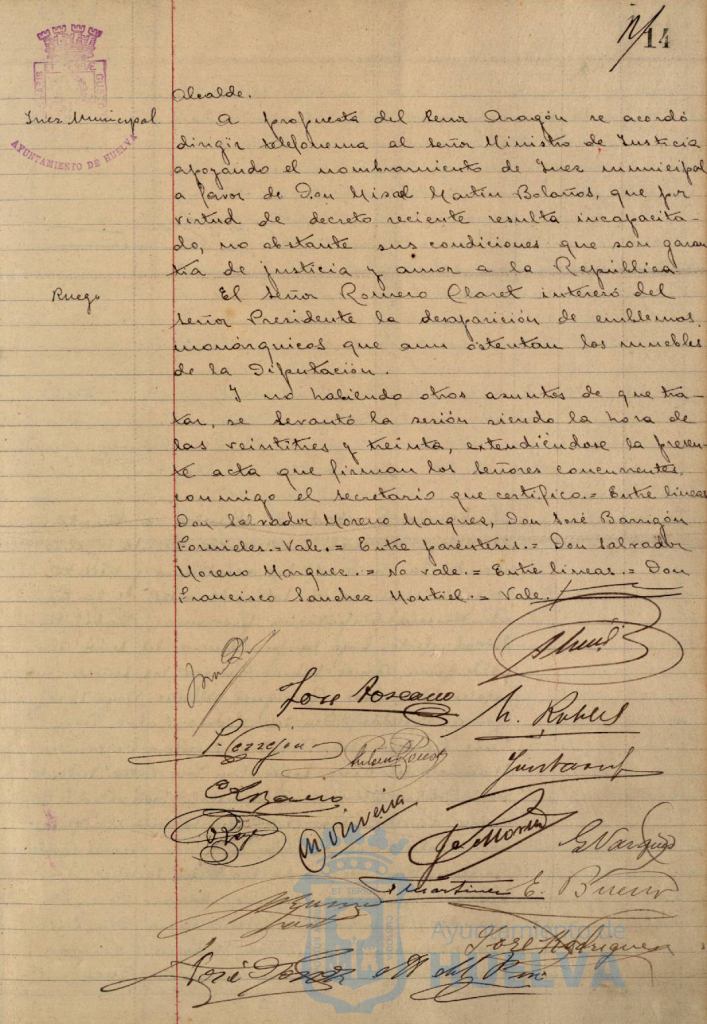 14
Alcalde.
Juez Municipal
AYUNTAMIENTO DE HUELVA
A propuesta del Señor Aragón se acordó
dirigir telefonema al Señor Ministro de Justicia
apoyando el nombramiento de Juez municipal
a favor de Don Misael Martin Bolaños, que por
virtud de decreto reciente resulta incapacita-
do, no obstante sus condiciones que son garan
tia de justicia y amor a la República
Ruego
El Señor Romero Claret interesó del
Señor Presidente la desaparición de emblemas
monárquicos que aun ostentan los muebles
de la Diputación.
Y no habiendo otros asuntos de que tra-
tar, se levantó la sesión siendo la hora de
las veintitres y treinta, extendiéndose la presen-
te acta que firman los señores concurrentes,
conmigo el secretario que certifico.= Entre lineas
Don Salvador Moreno Marquez, Don José Barrigón
Fornieles.=Vale.= Entre parentesis.= Don Salvador
Moreno Marquez.= No vale.= Entre lineas.= Don
Francisco Sanchez Montiel.= Vale.
Jose Toscano
E. Bueno
José Rodriguez
Ayuntamiento de
HUELVA